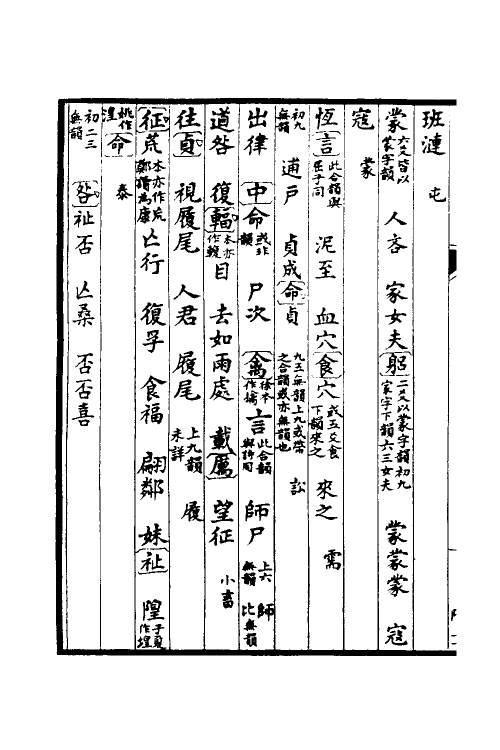 班漣　屯
蒙六爻皆以蒙字韻　人吝　家女夫躬二爻以蒙字韻初九家字下韻六三女夫　蒙蒙蒙　寇
寇　蒙
恆言此合韻與臣子同　泥至　血穴食穴或五爻食下韻來之　來之　需
初九無韻　逋戶　貞成命貞九五無韻上九或帶之合韻或亦無韻也　訟
出律　中命或非韻　尸次　禽徐本作擒言此合韻與師同　師尸上六無韻　師　比無韻
道咎　復輻本亦作輹目　去如雨處　載厲　望征　小畜
往貞　視履尾　人君　履尾上九韻未詳　履
征荒本亦作㠩鄭讀為康亾行　復孚　食福　翩鄰　妹祉　隍子夏作堭
姚作湟命　泰
初二三無韻　咎祉否　亾桑　否否喜